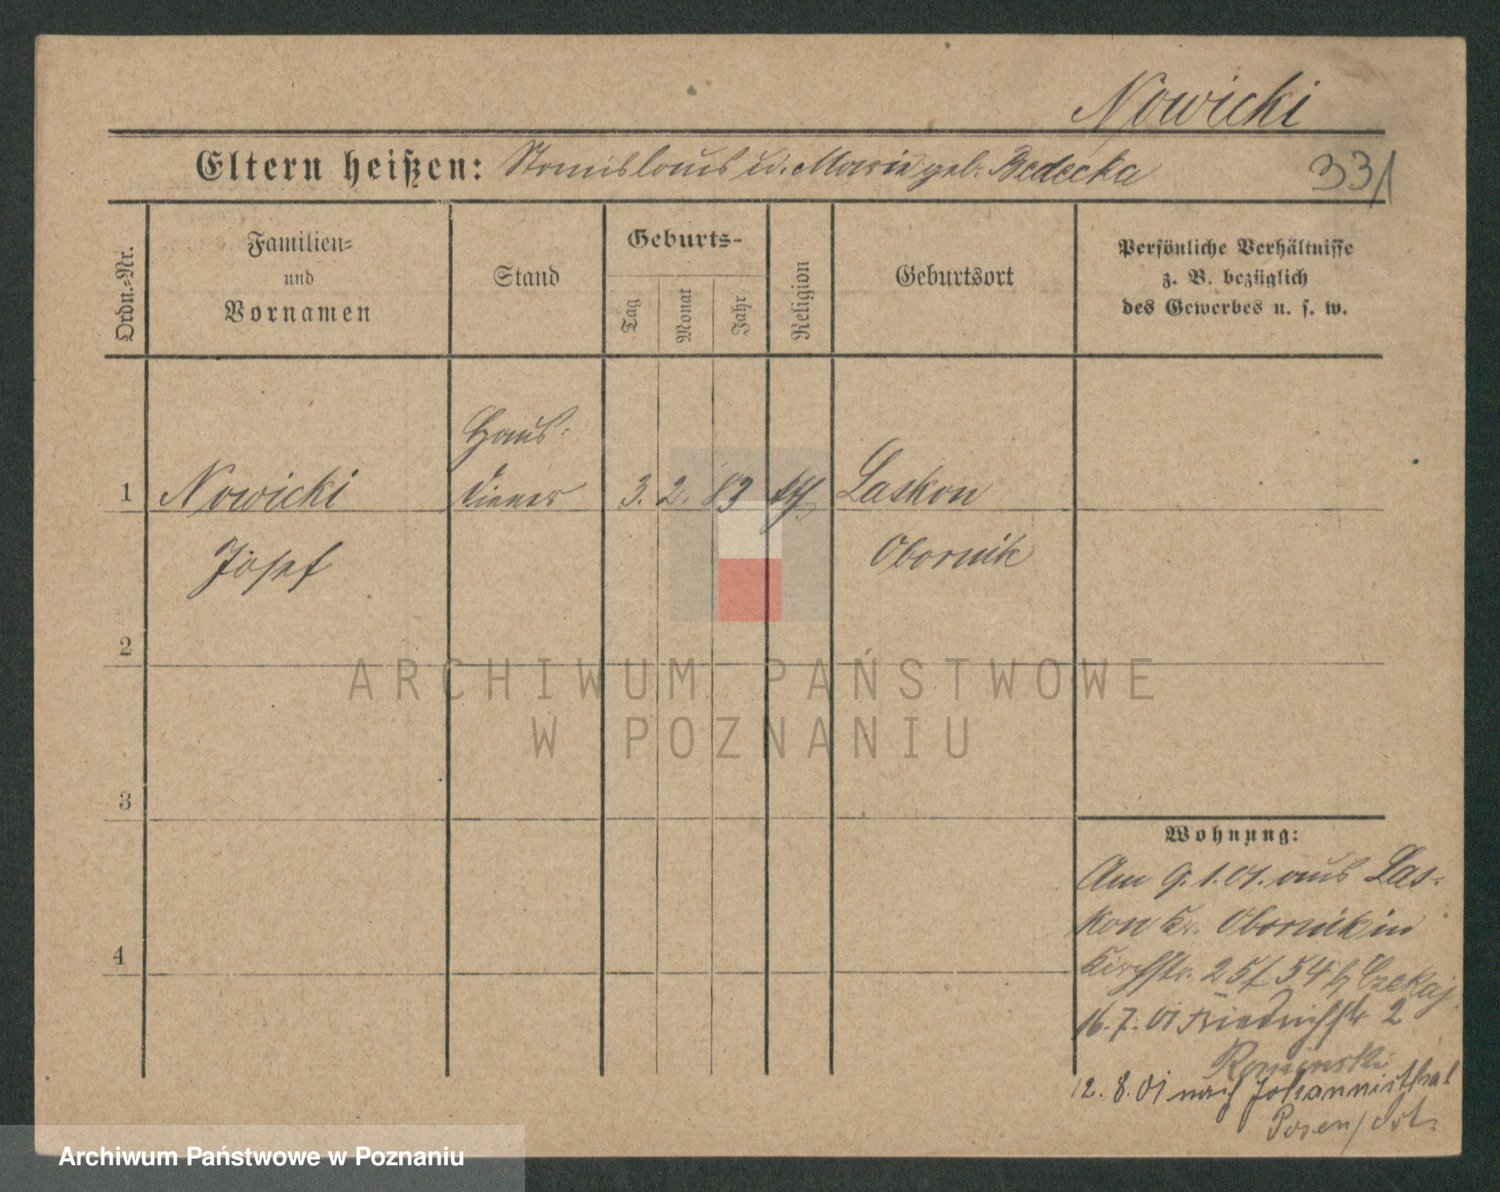 Nowicki
Eltern heißen: Stanislaus u. Marie geb. Bedecka
331
Ordn.-Nr.
Familien-
und
Vornamen
Stand
Geburts-
Tag
Monat
Jahr
Religion
Geburtsort
Persönliche Verhältnisse
z. B. bezüglich
des Gewerbes u. s. w.
Haus-
1 Nowicki diener 3. 2. 83 kth Laskon
Josef Obornik
2
3
4
Wohnung:
Am 9.1.01. aus Las-
kon Kr. Obornik in
Kirchstr. 25/54 b Czekaj
16.7.01 Friedrichstr 2
12.8.01 nach Johannisthal
Posen/Ost.
ARCHIWUM PAŃSTWOWE
W POZNANIU
Archiwum Państwowe w Poznaniu